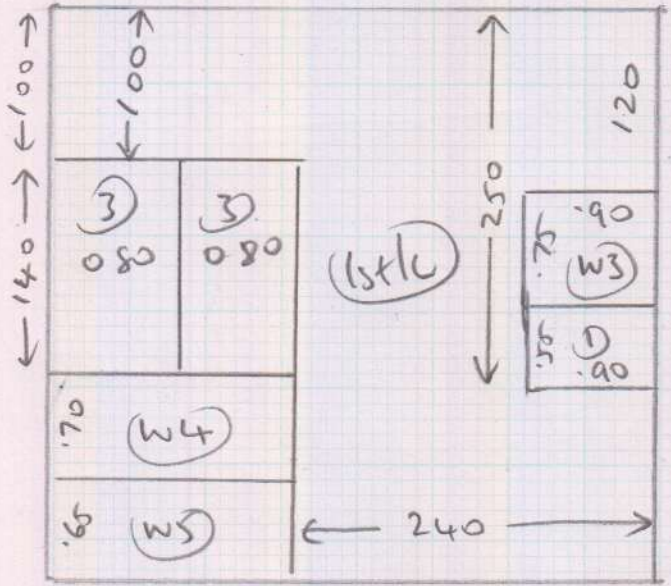 100
100
120
140
3
0 80
3
0 80
250
.75
.90
W3
.55
D
.90
.70
W4
.65
W5
240